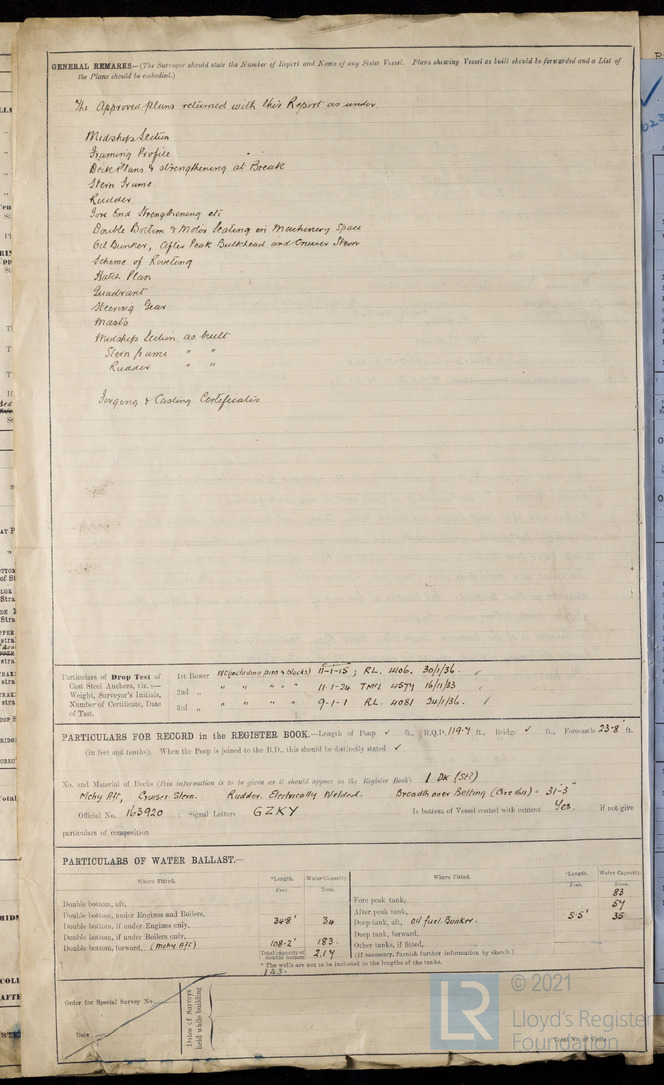 GENERAL REMARKS—(The Surveyor should state the Number of Report and Name of any Sister Vessel. Plans shewing Vessel as built should be forwarded and a List of
the Plans should be embodied.)
The Approved plans returned with this Report as under.
Midships Section
Framing Profile
Deck Plans & strengthening at Break
Stern Frame
Rudder
Fore End Strengthening etc
Double Bottom & Motor Seating in Machinery Space
Oil Bunker, After Peak Bulkhead and Cruiser Stern
Scheme of Riveting
Hatch Plan
Quadrant
Steering Gear
Masts
Midships Section as built
Stern frame " "
Rudder " "
Forging & Casting Certificates
Particulars of Drop Test of
Cast Steel Anchors, viz.:—
Weight, Surveyor's Initials,
Number of Certificate, Date
of Test.
1st Bower Wt (including pins & blocks) 11-1-15; R.L. 4106. 30/1/36.
2nd " " " " " 11-1-24 4579 16/11/33
3rd " " " " " 9-1-1 R.L. 4081 24/1/36.
PARTICULARS FOR RECORD in the REGISTER BOOK.—Length of Poop ✓ ft., R.Q.D. 119.7 ft., Bridge ✓ ft., Forecastle 23.8 ft.
(in feet and tenths). When the Poop is joined to the B.D., this should be distinctly stated ✓
No. and Material of Decks (this information is to be given as it should appear in the Register Book) 1 DK (Stl)
Mchy Aft, Cruiser Stern. Rudder. Electrically Welded. Breadth over Belting = 31'-3"
Official No. 163920 Signal Letters GZKY Is bottom of Vessel coated with cement Yes. if not give
particulars of composition
PARTICULARS OF WATER BALLAST.—
Where Fitted. *Length. Water Capacity. Where Fitted. *Length. Water Capacity.
Feet. Tons. Feet. Tons.
Double bottom, aft, Fore peak tank, 83
Double bottom, under Engines and Boilers, After peak tank, 57
Double bottom, if under Engines only, 34.8' 34 Deep tank, aft, Oil fuel Bunker. 5.5' 35
Double bottom, if under Boilers only, Deep tank, forward,
Double bottom, forward, (Mchy Aft) 108.2' 183. Other tanks, if fitted,
Total capacity of double bottom 217 (If necessary, furnish further information by sketch.)
* The walls are not to be included in the lengths of the tanks.
143.
Order for Special Survey No.
Date
Dates of Surveys
held while building
Total No. of Visits
LR
© 2021
Lloyd's Register
Foundation